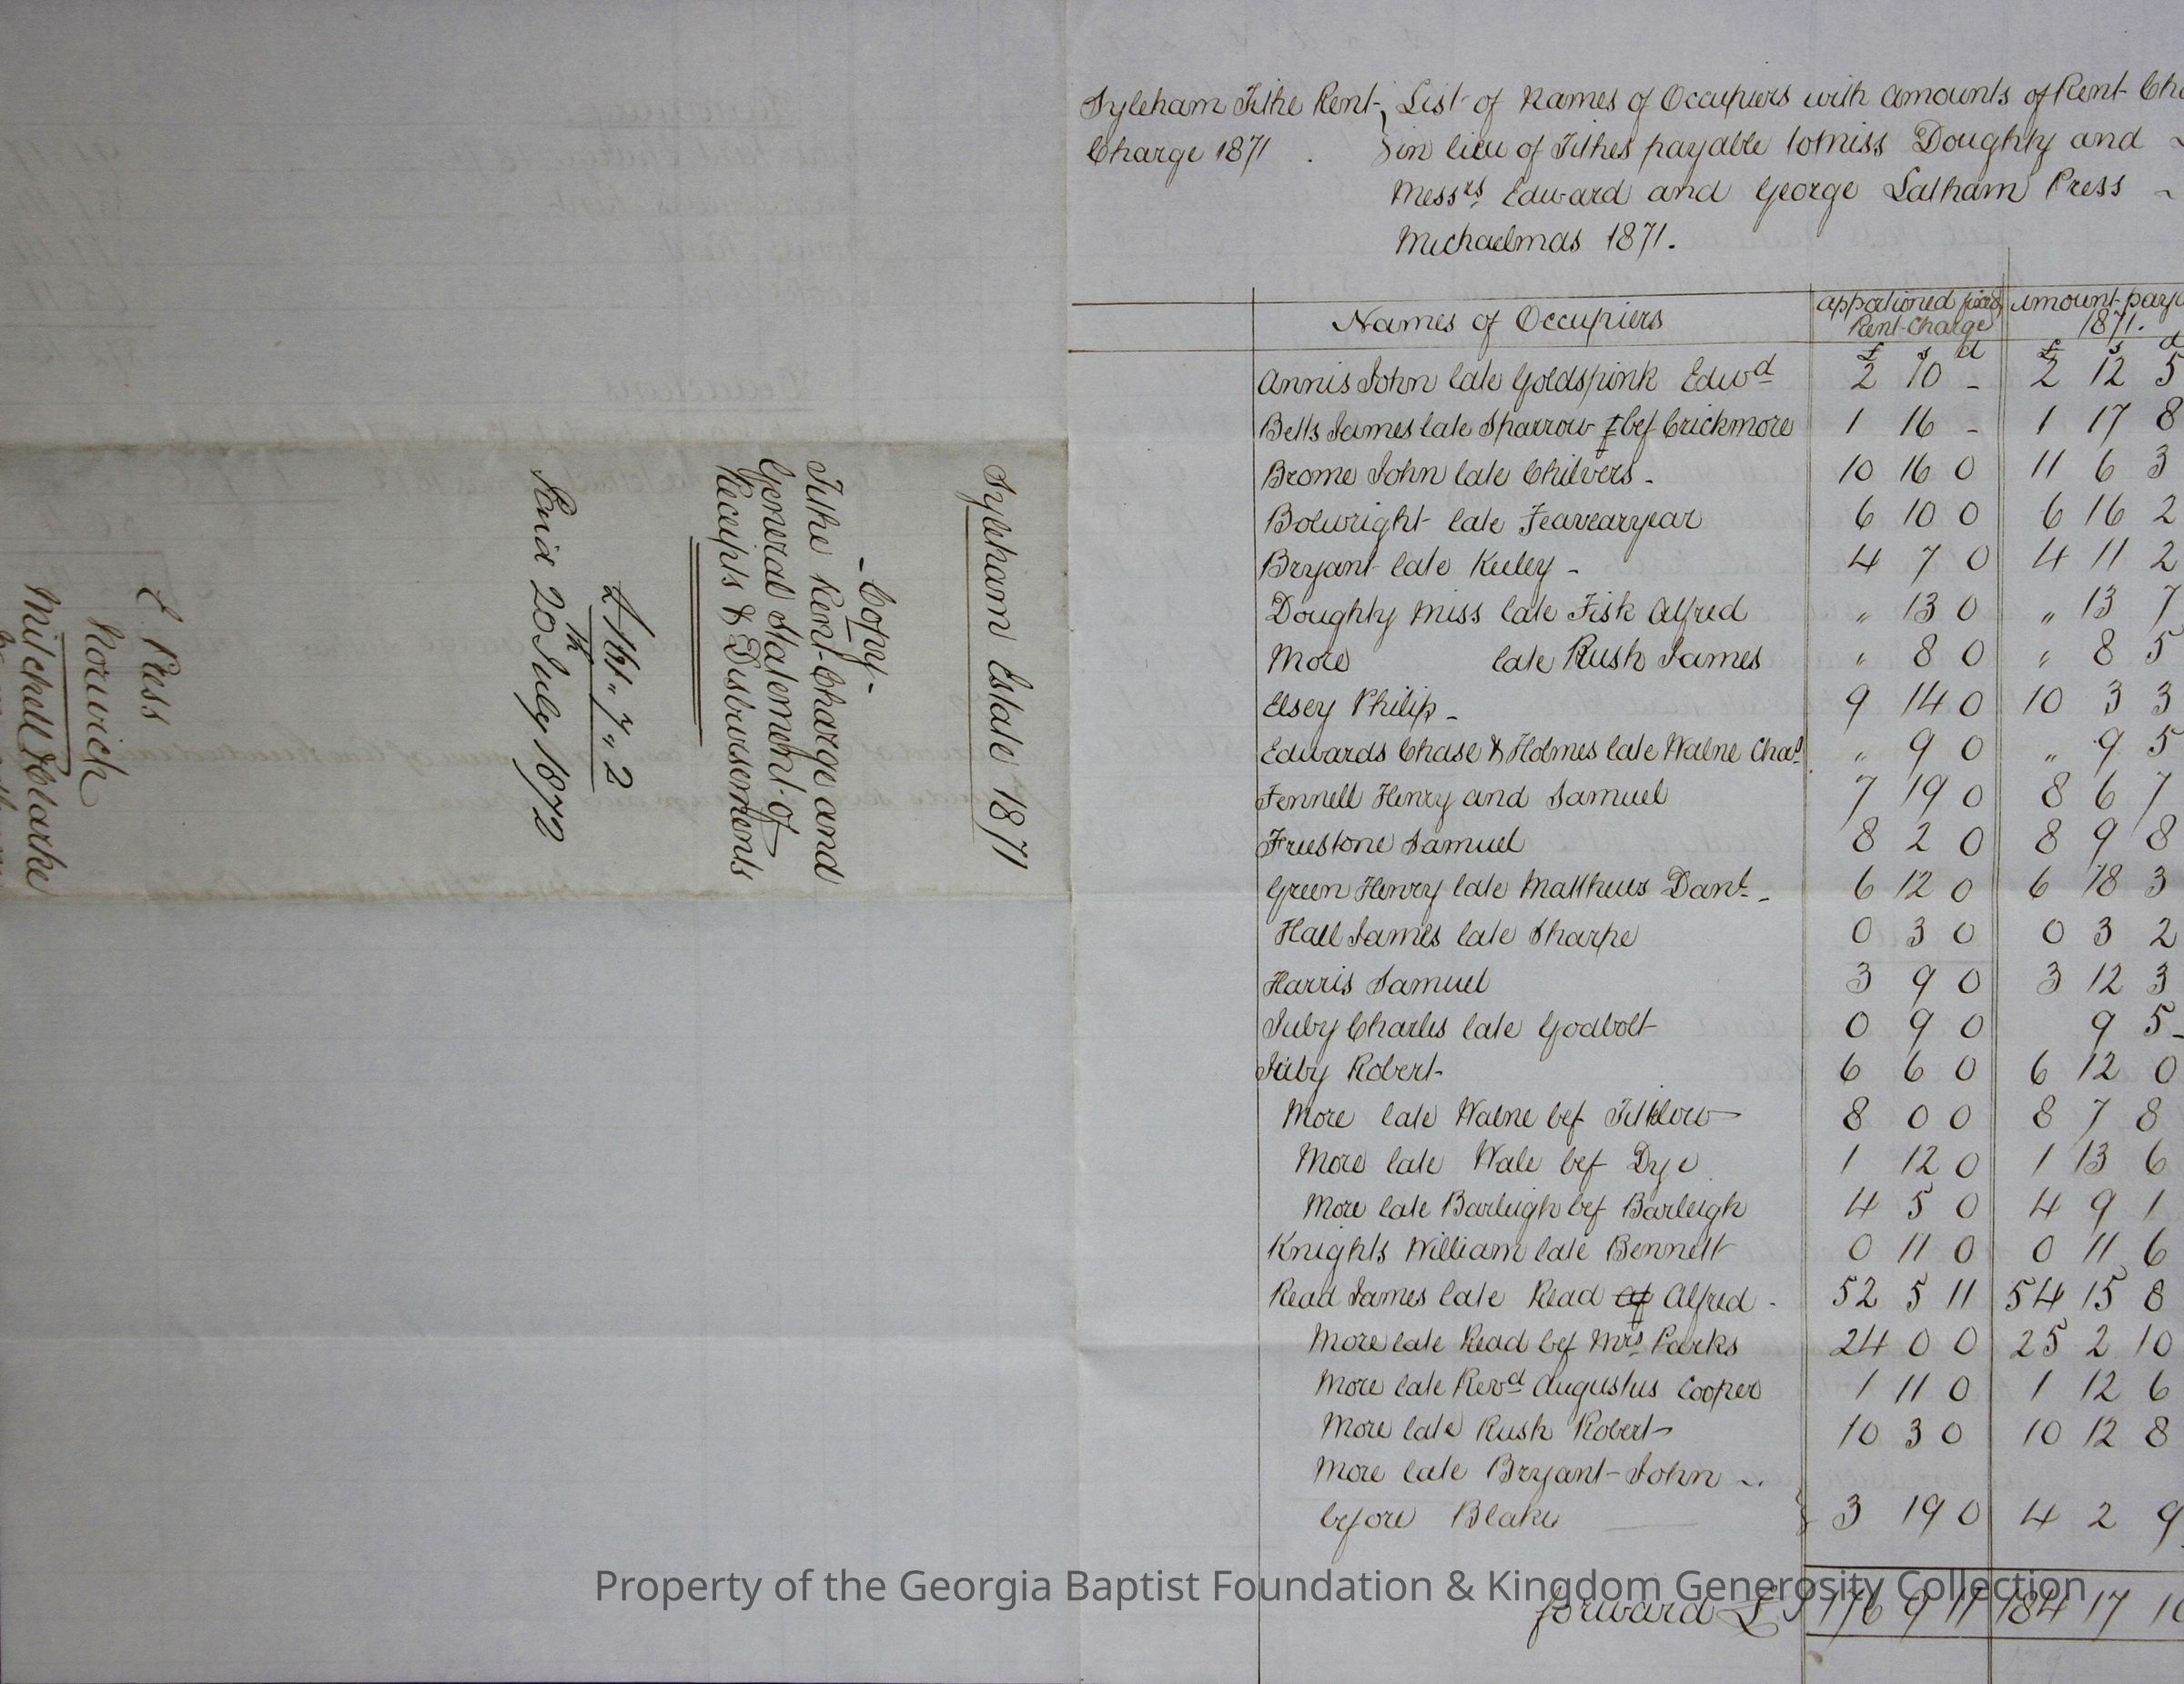 Syleham Tithe Rent- List of Names of Occupiers with Amounts of Rent Cha
Charge 1871 . in lieu of Tithes payable to Miss Doughty and
Messrs Edward and George Latham Press
Michaelmas 1871.
Names of Occupiers apportioned fixed Rent-Charge amount paya 1871.
£ s d £ s d
Annis John late Goldspink Edwd 2 10 - 2 12 5
Betts James late Sparrow bef Crickmore 1 16 - 1 17 8
Brome John late Chilvers - 10 16 0 11 6 3
Bolwright late Feavearyear 6 10 0 6 16 2
Bryant late Keeley - 4 7 0 4 11 2
Doughty Miss late Fisk Alfred " 13 0 " 13 7
More late Rush James " 8 0 " 8 5
Elsey Philip - 9 14 0 10 3 3
Edwards Chase & Holmes late Walne Chas " 9 0 " 9 5
Fennell Henry and Samuel 7 19 0 8 6 7
Freestone Samuel 8 2 0 8 9 8
Green Henry late Matthews Danl - 6 12 0 6 18 3
Hall James late Sharpe 0 3 0 0 3 2
Harris Samuel 3 9 0 3 12 3
Juby Charles late Godbolt 0 9 0 9 5
Juby Robert 6 6 0 6 12 0
More late Walne bef Titlow 8 0 0 8 7 8
More late Wale bef Dye 1 12 0 1 13 6
More late Barleigh bef Barleigh 4 5 0 4 9 1
Knights William late Bennett 0 11 0 0 11 6
Read James late Read Alfred - 52 5 11 54 15 8
More late Read bef Mrs Parks 24 0 0 25 2 10
More late Revd Augustus Cooper 1 11 0 1 12 6
More late Rush Robert 10 3 0 10 12 8
More late Bryant John
before Blake 3 19 0 4 2 9
forward £ 176 9 11 184 17 10
Syleham Estate 1871
- Copy -
Tithe Rent-Charge and
General Statement of
Receipts & Disbursements
£ 161 " 7 " 2
Paid 20th July 1872
E Pess
Norwich
Mitchell & Clarke
Property of the Georgia Baptist Foundation & Kingdom Generosity Collection